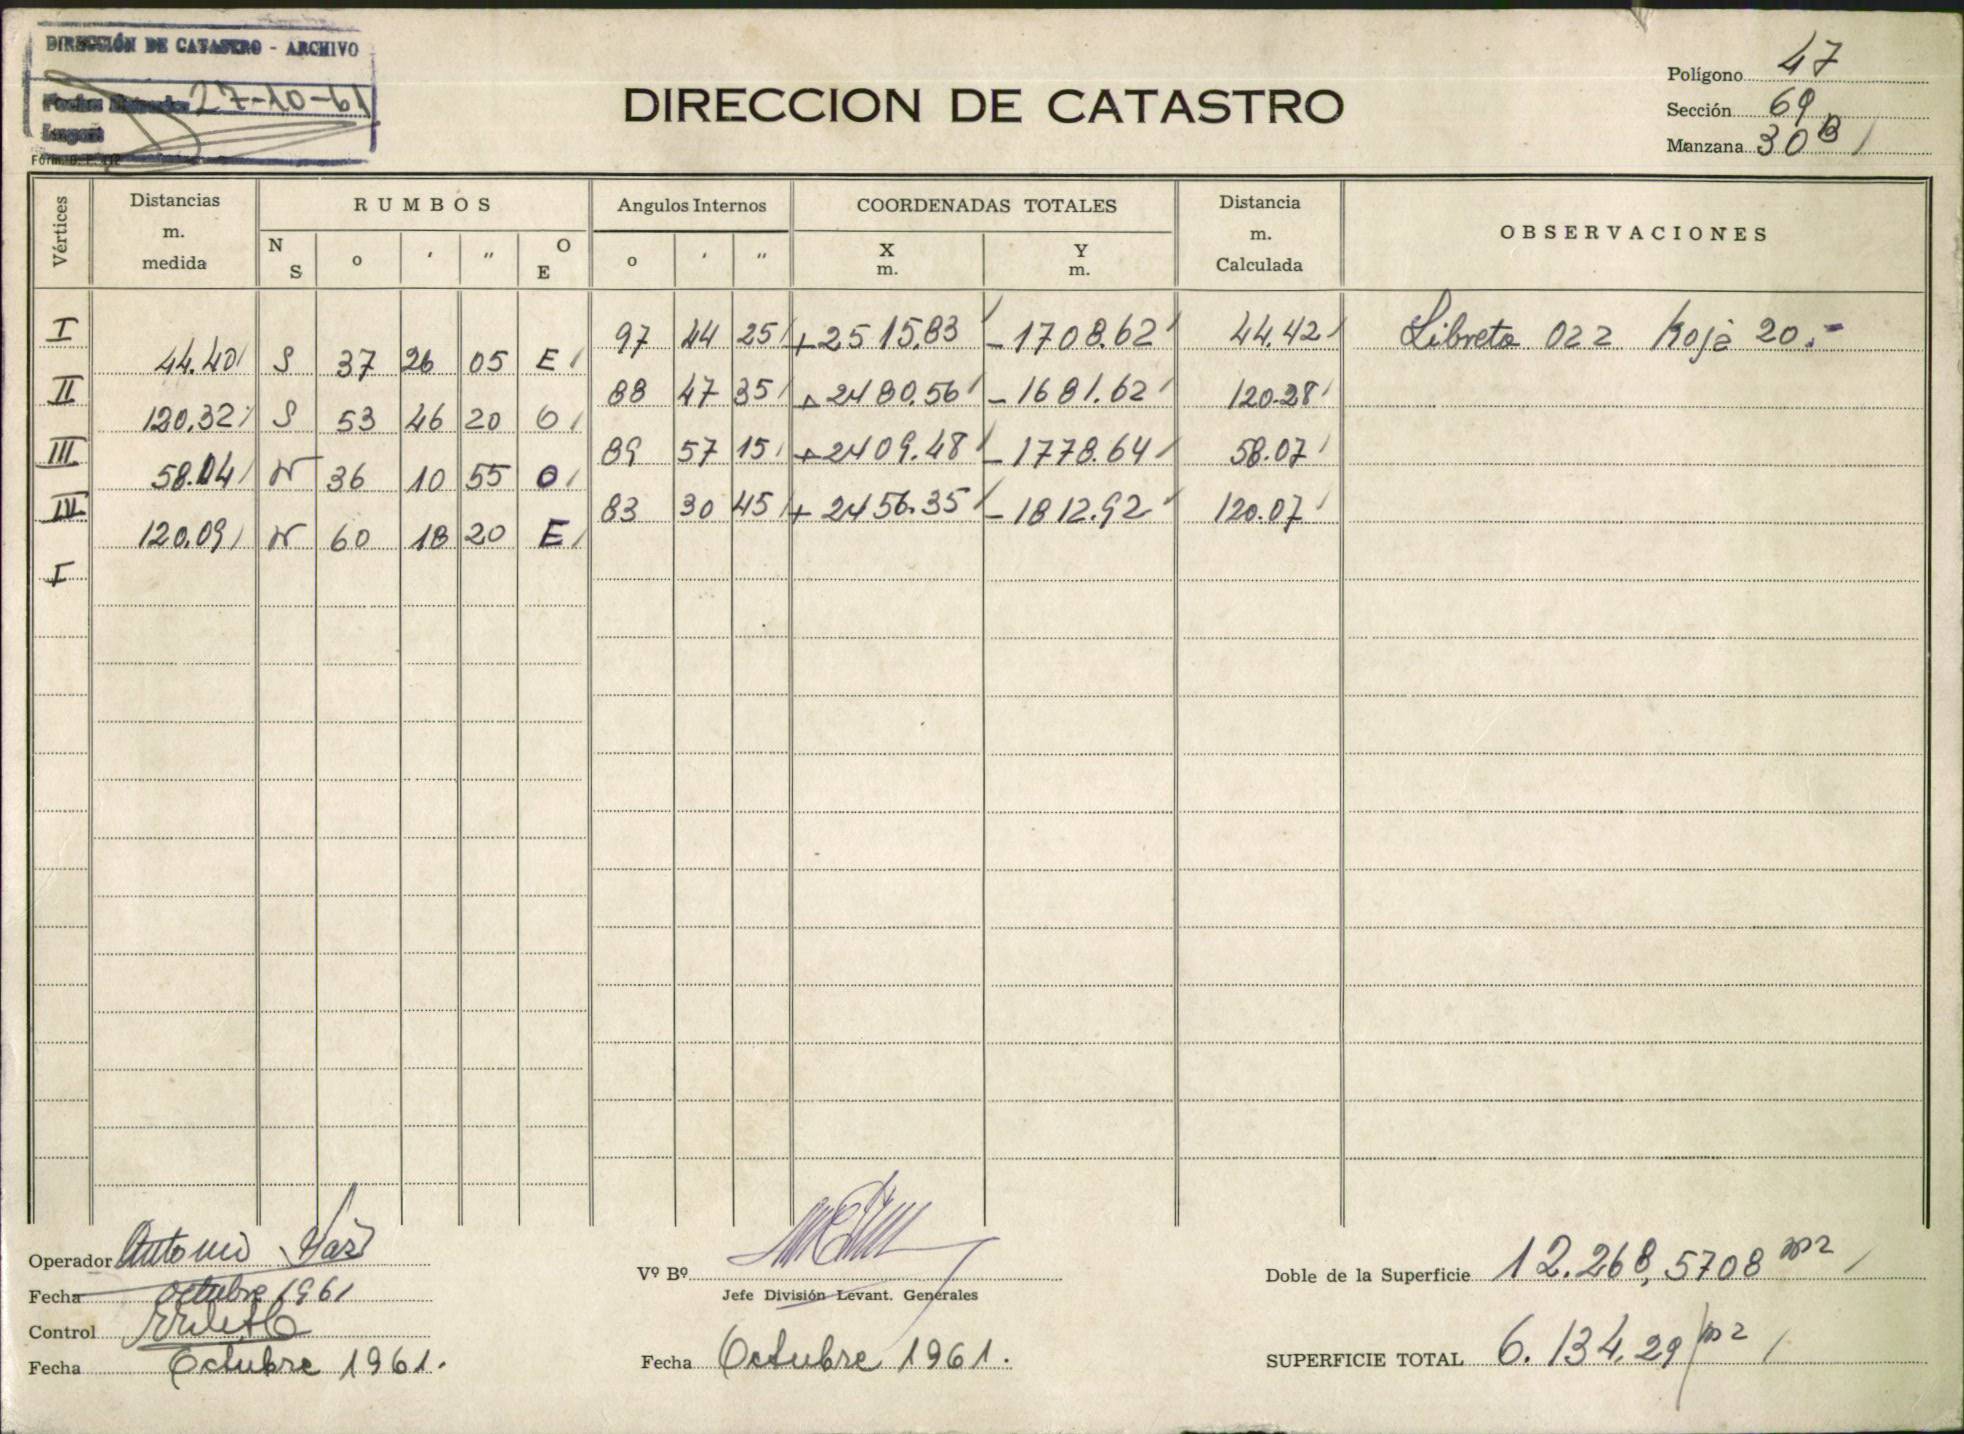 DIRECCIÓN DE CATASTRO - ARCHIVO
Fecha 27-10-61
Legajo
DIRECCION DE CATASTRO
Polígono 47
Sección 69
Manzana 30 B
Vértices
Distancias m. medida
RUMBOS
N S o ' " O E
Angulos Internos
o ' "
COORDENADAS TOTALES
X m. Y m.
Distancia m. Calculada
OBSERVACIONES
I 97 44 25 +2515.83 -1708.62 44.42 Libreta 022 Hoja 20.-
44.40 S 37 26 05 E
II 88 47 35 +2480.56 -1681.62 120.28
120.32 S 53 46 20 O
III 89 57 15 +2409.48 -1778.64 58.07
58.04 N 36 10 55 O
IV 83 30 45 +2456.35 -1812.92 120.07
120.09 N 60 18 20 E
I
Operador Antonio
Fecha octubre 1961
Control
Fecha Octubre 1961.
Vº Bº
Jefe División Levant. Generales
Fecha Octubre 1961.
Doble de la Superficie 12.268,5708 m2
SUPERFICIE TOTAL 6.134,29 m2